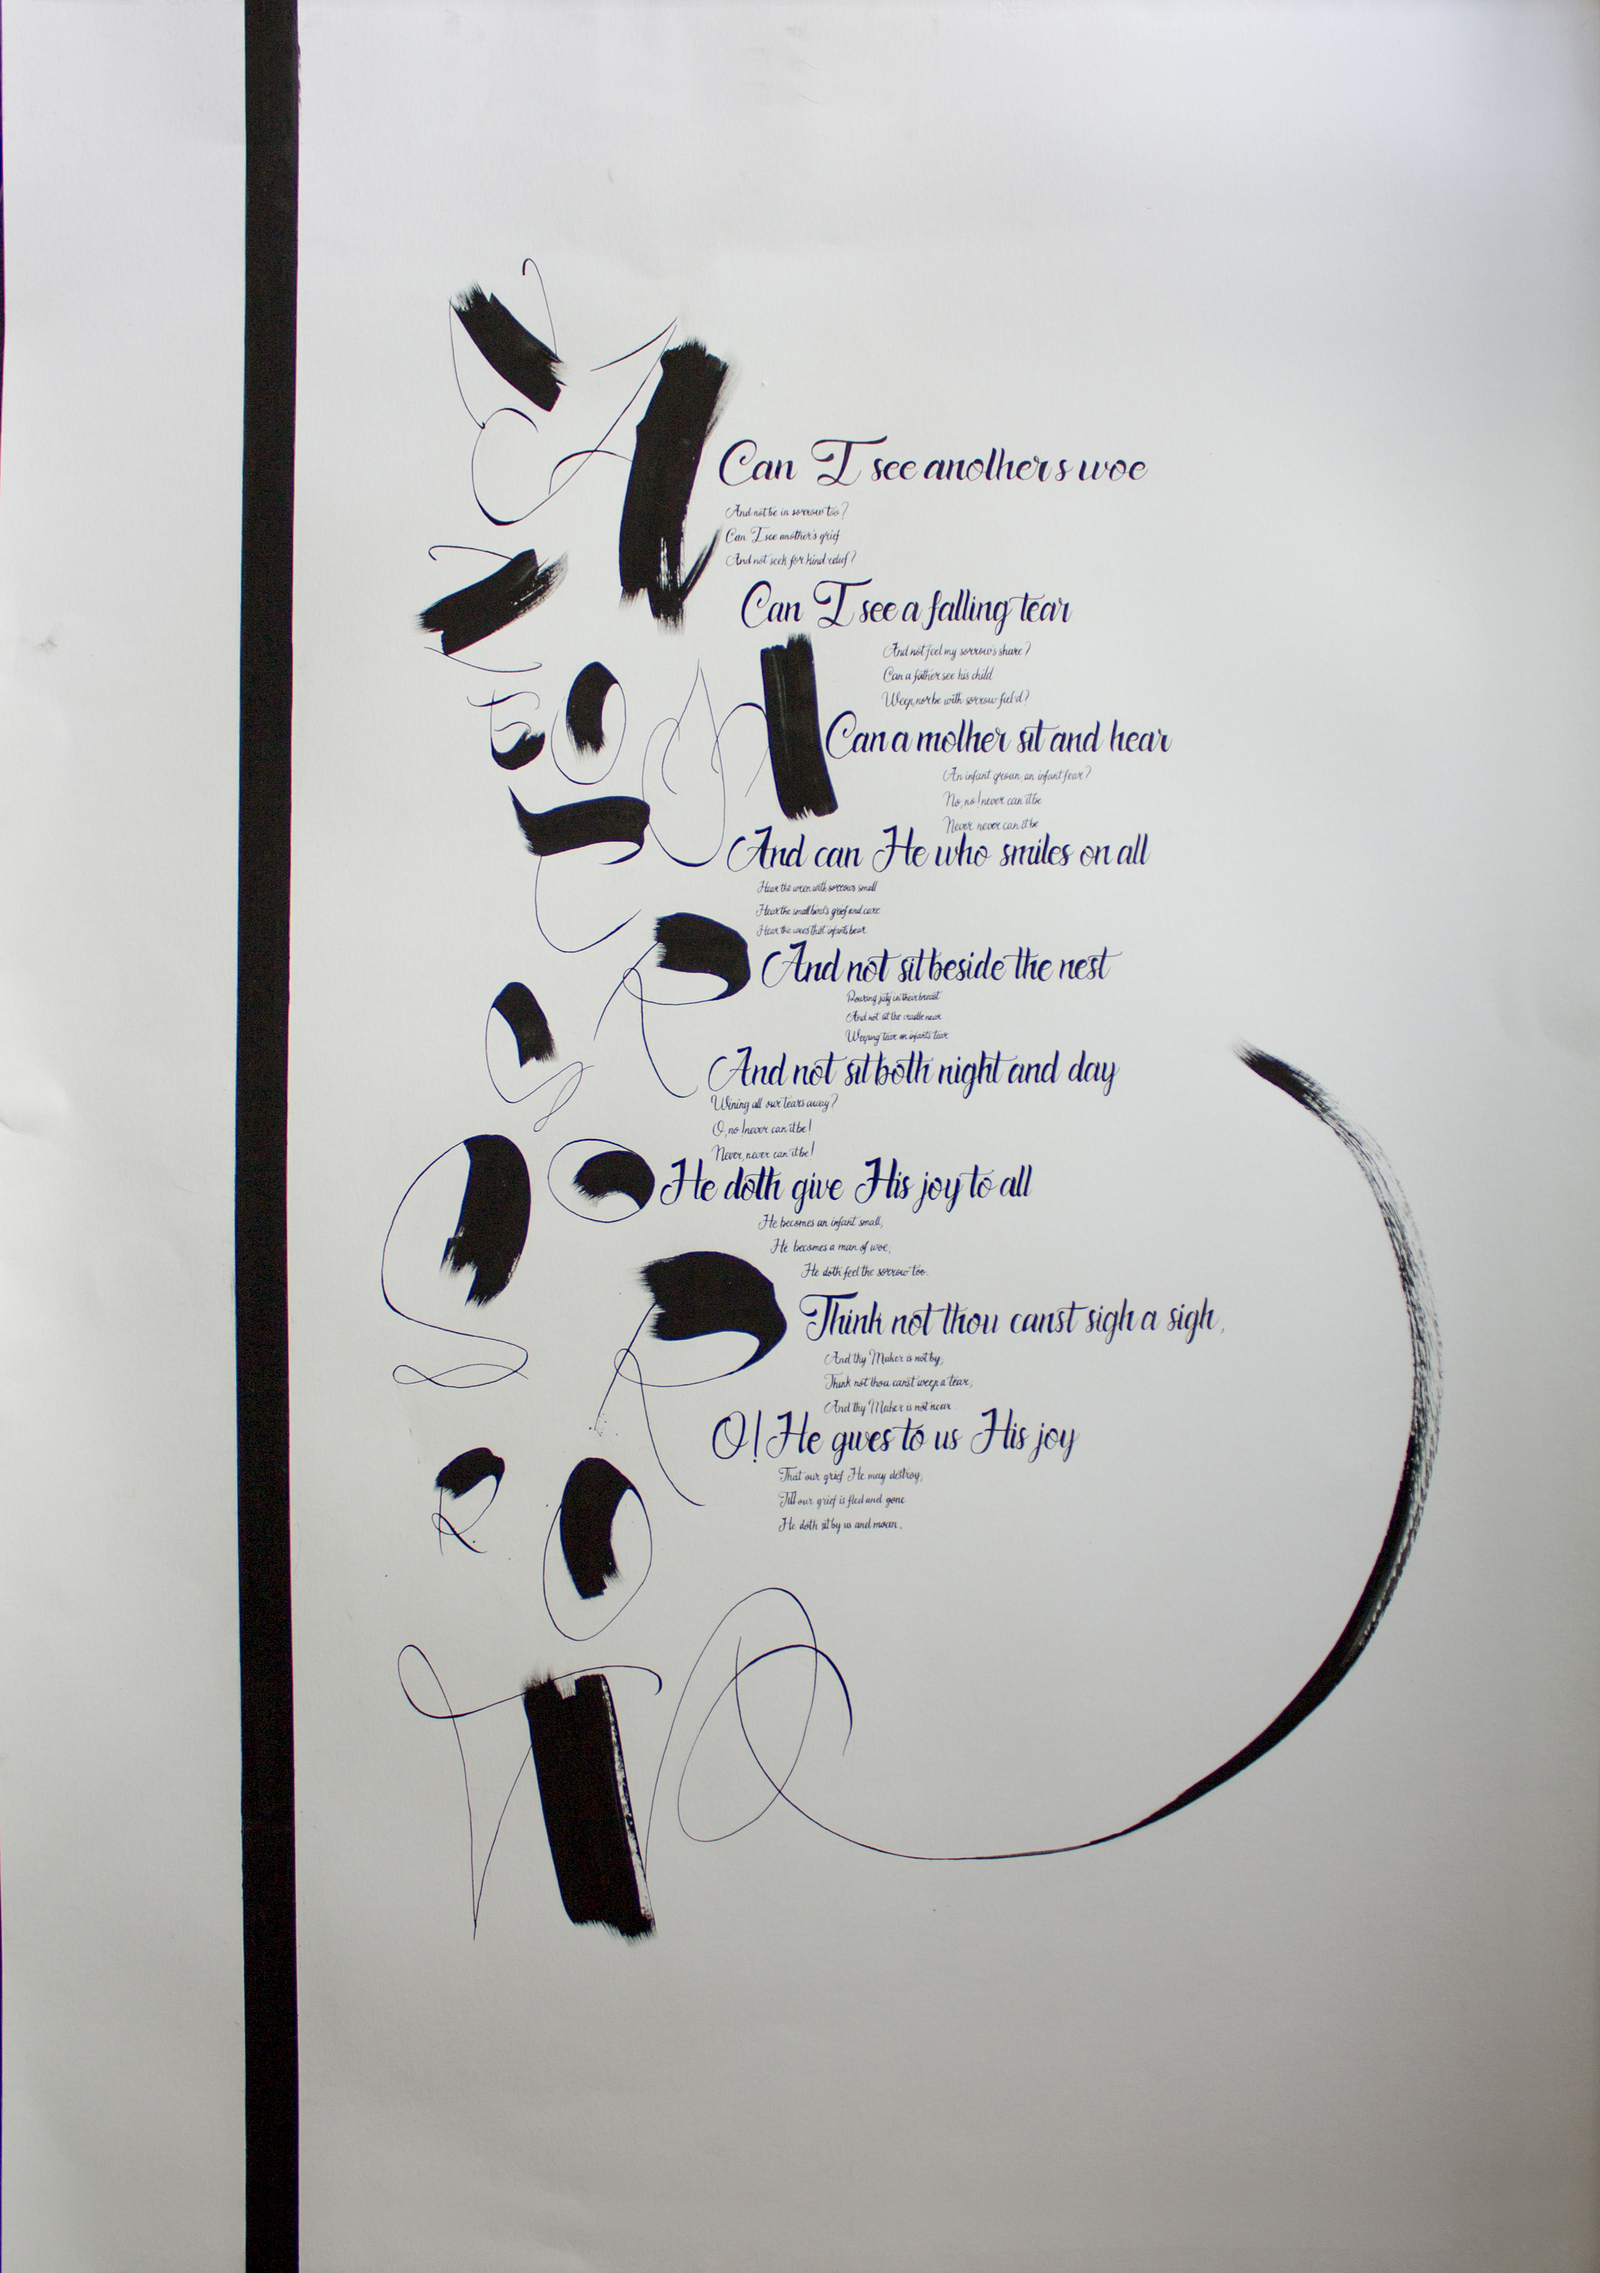 Can I see anothers woe
And not be in sorrow too?
Can I see another's grief
And not seek for kind relief?
Can I see a falling tear
And not feel my sorrow's share?
Can a father see his child
Weep, nor be with sorrow fiel'd?
Can a mother sit and hear
An infant groan, an infant fear?
No, no! never can it be
Never never can it be
And can He who smiles on all
Hear the wren with sorrows small
Hear the small bird's grief and care
Hear the woes that infants bear
And not sit beside the nest
Pouring pity in their breast
And not sit the cradle near
Weeping tear on infant's tear
And not sit both night and day
Wining all our tears away?
O, no! never can it be!
Never, never can it be!
He doth give His joy to all
He becomes an infant small,
He becomes a man of woe,
He doth feel the sorrow too.
Think not thou canst sigh a sigh,
And thy Maker is not by,
Think not thou canst weep a tear,
And thy Maker is not near.
O! He gives to us His joy
That our grief He may destroy,
Till our grief is fled and gone
He doth sit by us and moan.